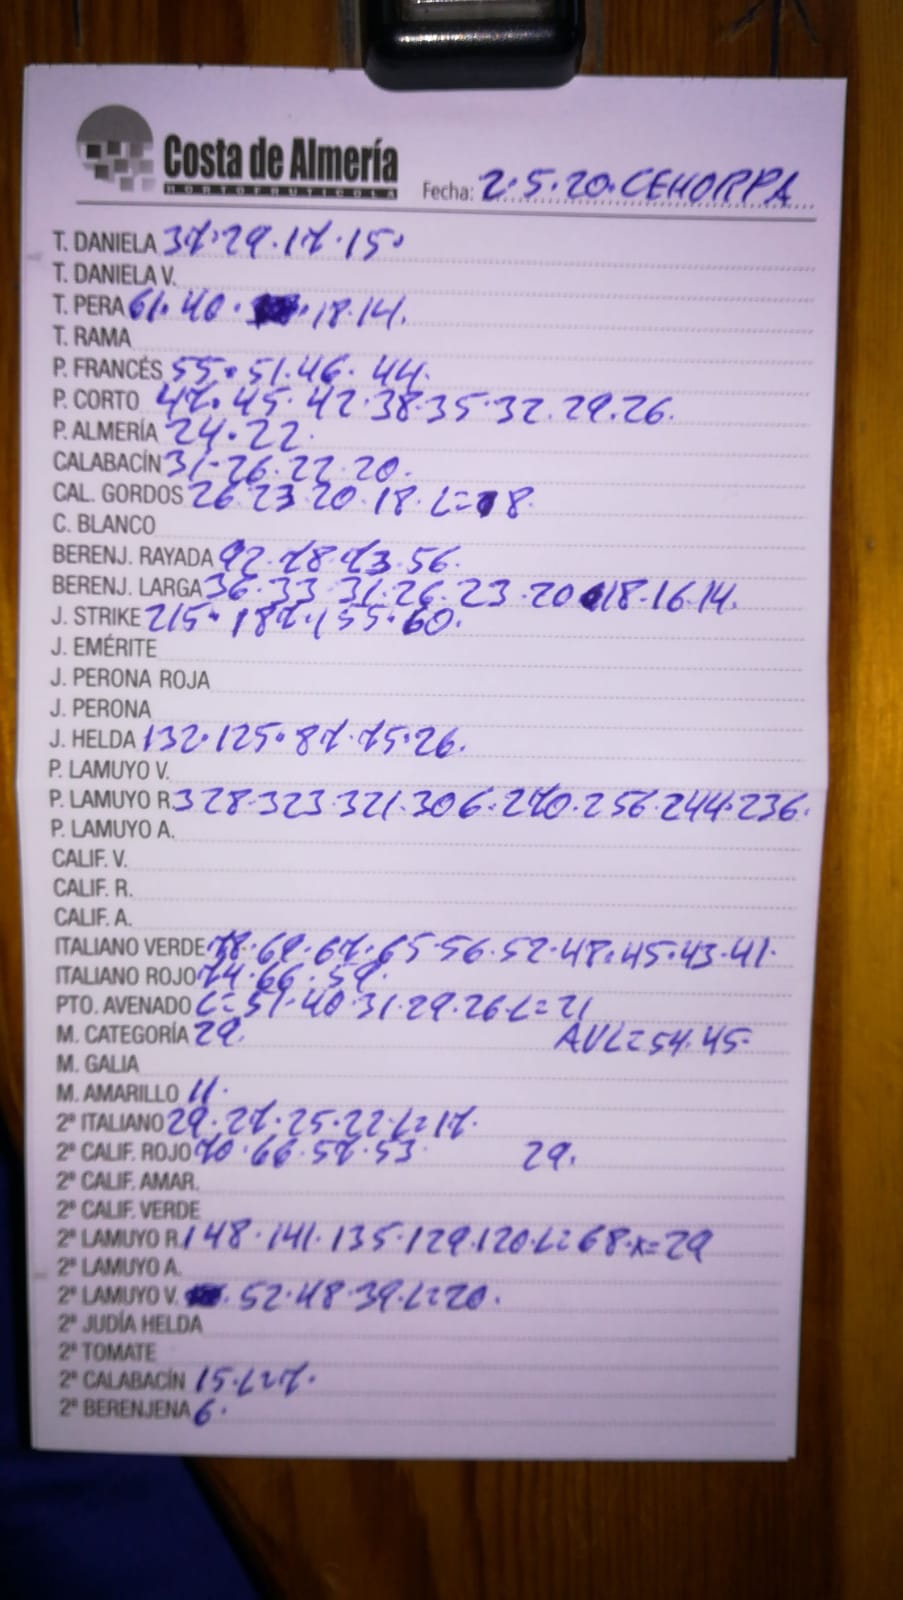 Costa de Almería
HORTOFRUTICOLA
Fecha: 2.5.20.CEHORPA
T. DANIELA 37.29.17.15.
T. DANIELA V.
T. PERA 61.40. .18.14.
T. RAMA
P. FRANCÉS 55.51.46.44.
P. CORTO 47.45.42.38.35.32.29.26.
P. ALMERÍA 24.22.
CALABACÍN 31-26.22.20.
CAL. GORDOS 26.23.20.18.L=8.
C. BLANCO
BERENJ. RAYADA 92.78.73.56.
BERENJ. LARGA 36.33.31.26.23.20.18.16.14.
J. STRIKE 215.187.155.60.
J. EMÉRITE
J. PERONA ROJA
J. PERONA
J. HELDA 132.125.87.75.26.
P. LAMUYO V.
P. LAMUYO R. 328.323.321.306.270.256.244.236.
P. LAMUYO A.
CALIF. V.
CALIF. R.
CALIF. A.
ITALIANO VERDE 78.69.67.65.56.52.48.45.43.41.
ITALIANO ROJO 74.66.59.
PTO. AVENADO L=51.40.31.29.26.L=21
M. CATEGORÍA 29. AVL=54.45.
M. GALIA
M. AMARILLO 11.
2ª ITALIANO 29.27.25.22.L=17.
2ª CALIF. ROJO 70.66.57.53. 29.
2ª CALIF. AMAR.
2ª CALIF. VERDE
2ª LAMUYO R. 148.141.135.129.120.L=68.x=29
2ª LAMUYO A.
2ª LAMUYO V. .52.48.39.L=20.
2ª JUDÍA HELDA
2ª TOMATE
2ª CALABACÍN 15.L=7.
2ª BERENJENA 6.